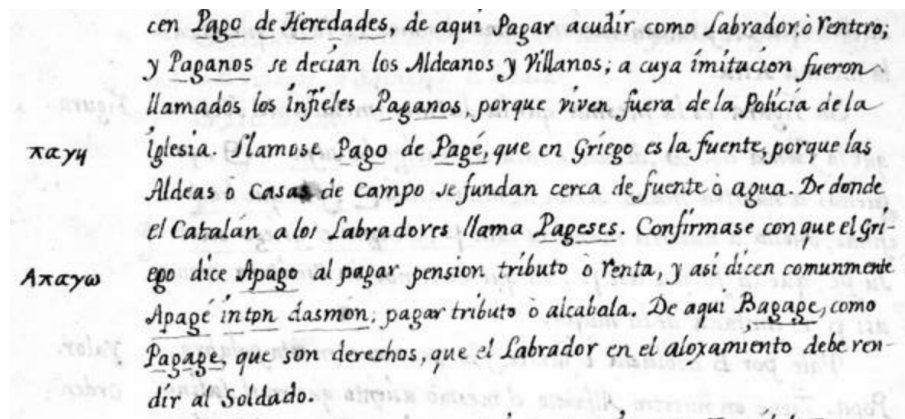 cen Pago de Heredades, de aqui Pagar acudir como Labrador, ò Rentero;
y Paganos se decian los Aldeanos y Villanos; a cuya imitacion fueron
llamados los Infieles Paganos, porque viven fuera de la Policia de la
παγη Iglesia. Llamose Pago de Pagé, que en Griego es la fuente, porque las
Aldeas ò Casas de Campo se fundan cerca de fuente ò agua. De donde
el Catalán a los Labradores llama Pageses. Confirmase con que el Gri-
Απαγω ego dice Apago al pagar pension tributo ò Renta, y asi dicen comunmente
Apagé intpn dasmon, pagar tributo ò alcabala. De aqui Bagage, como
Pagage, que son derechos, que el Labrador en el aloxamiento debe ren-
dir al Soldado.